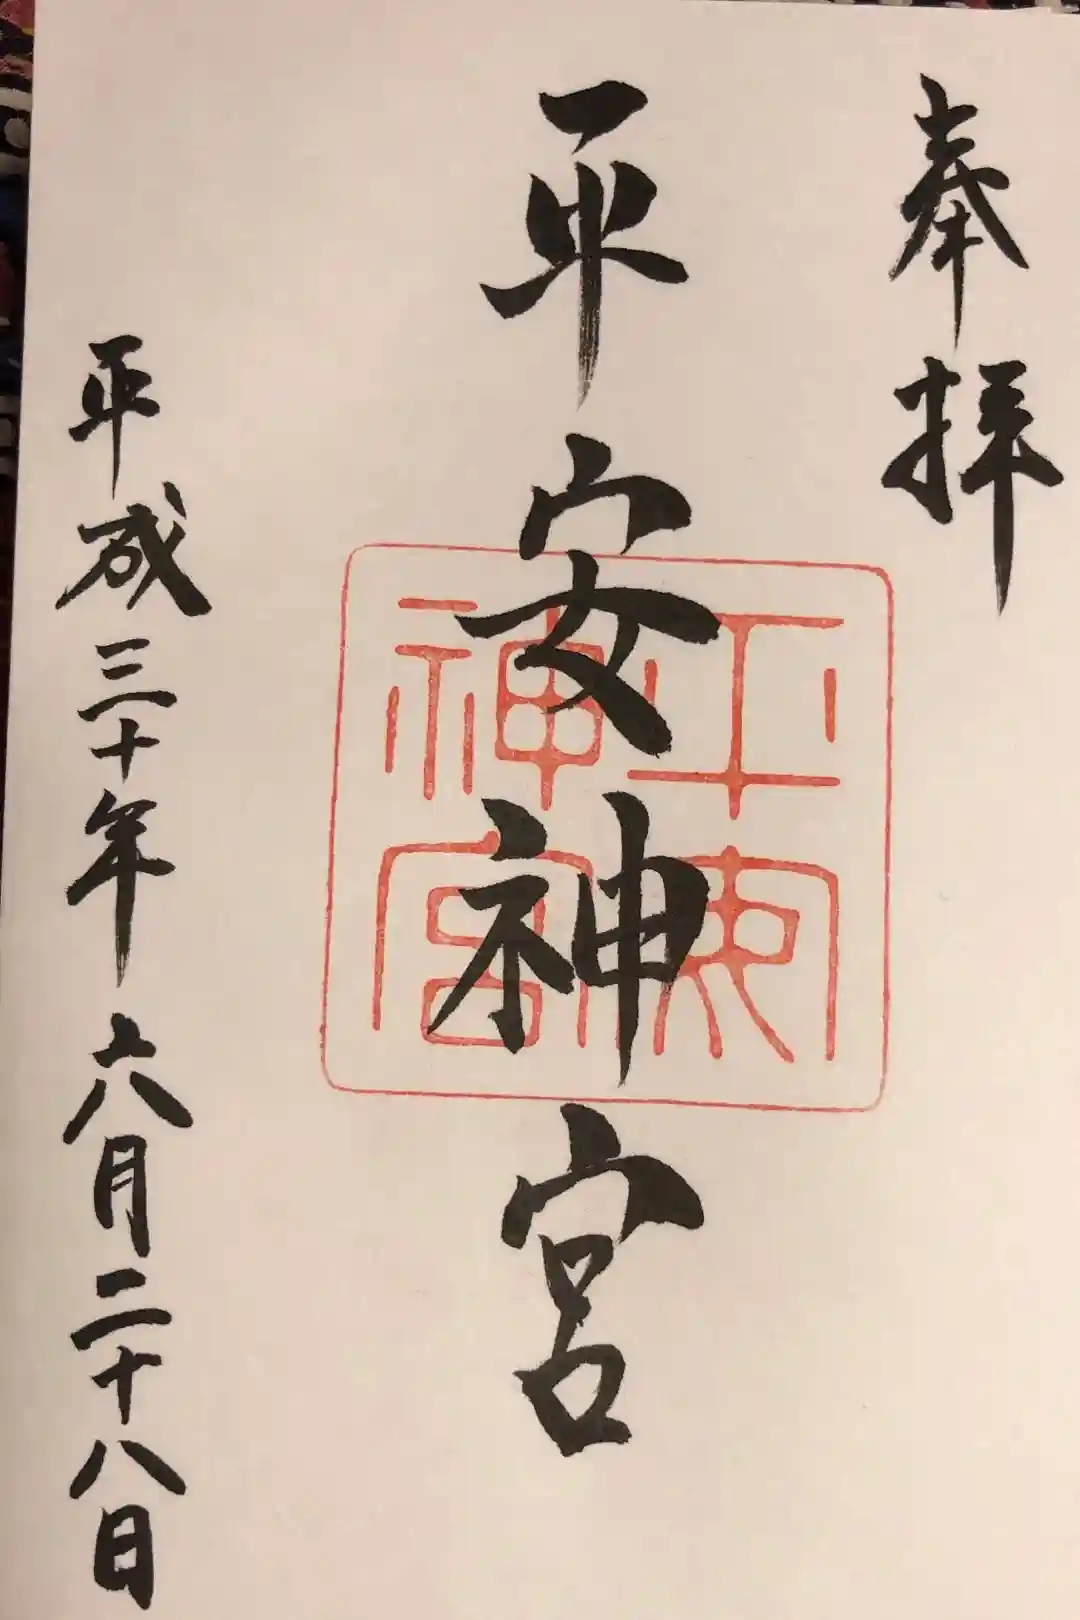 奉拝
平安神宮
平安神宮
平成三十年 六月二十八日